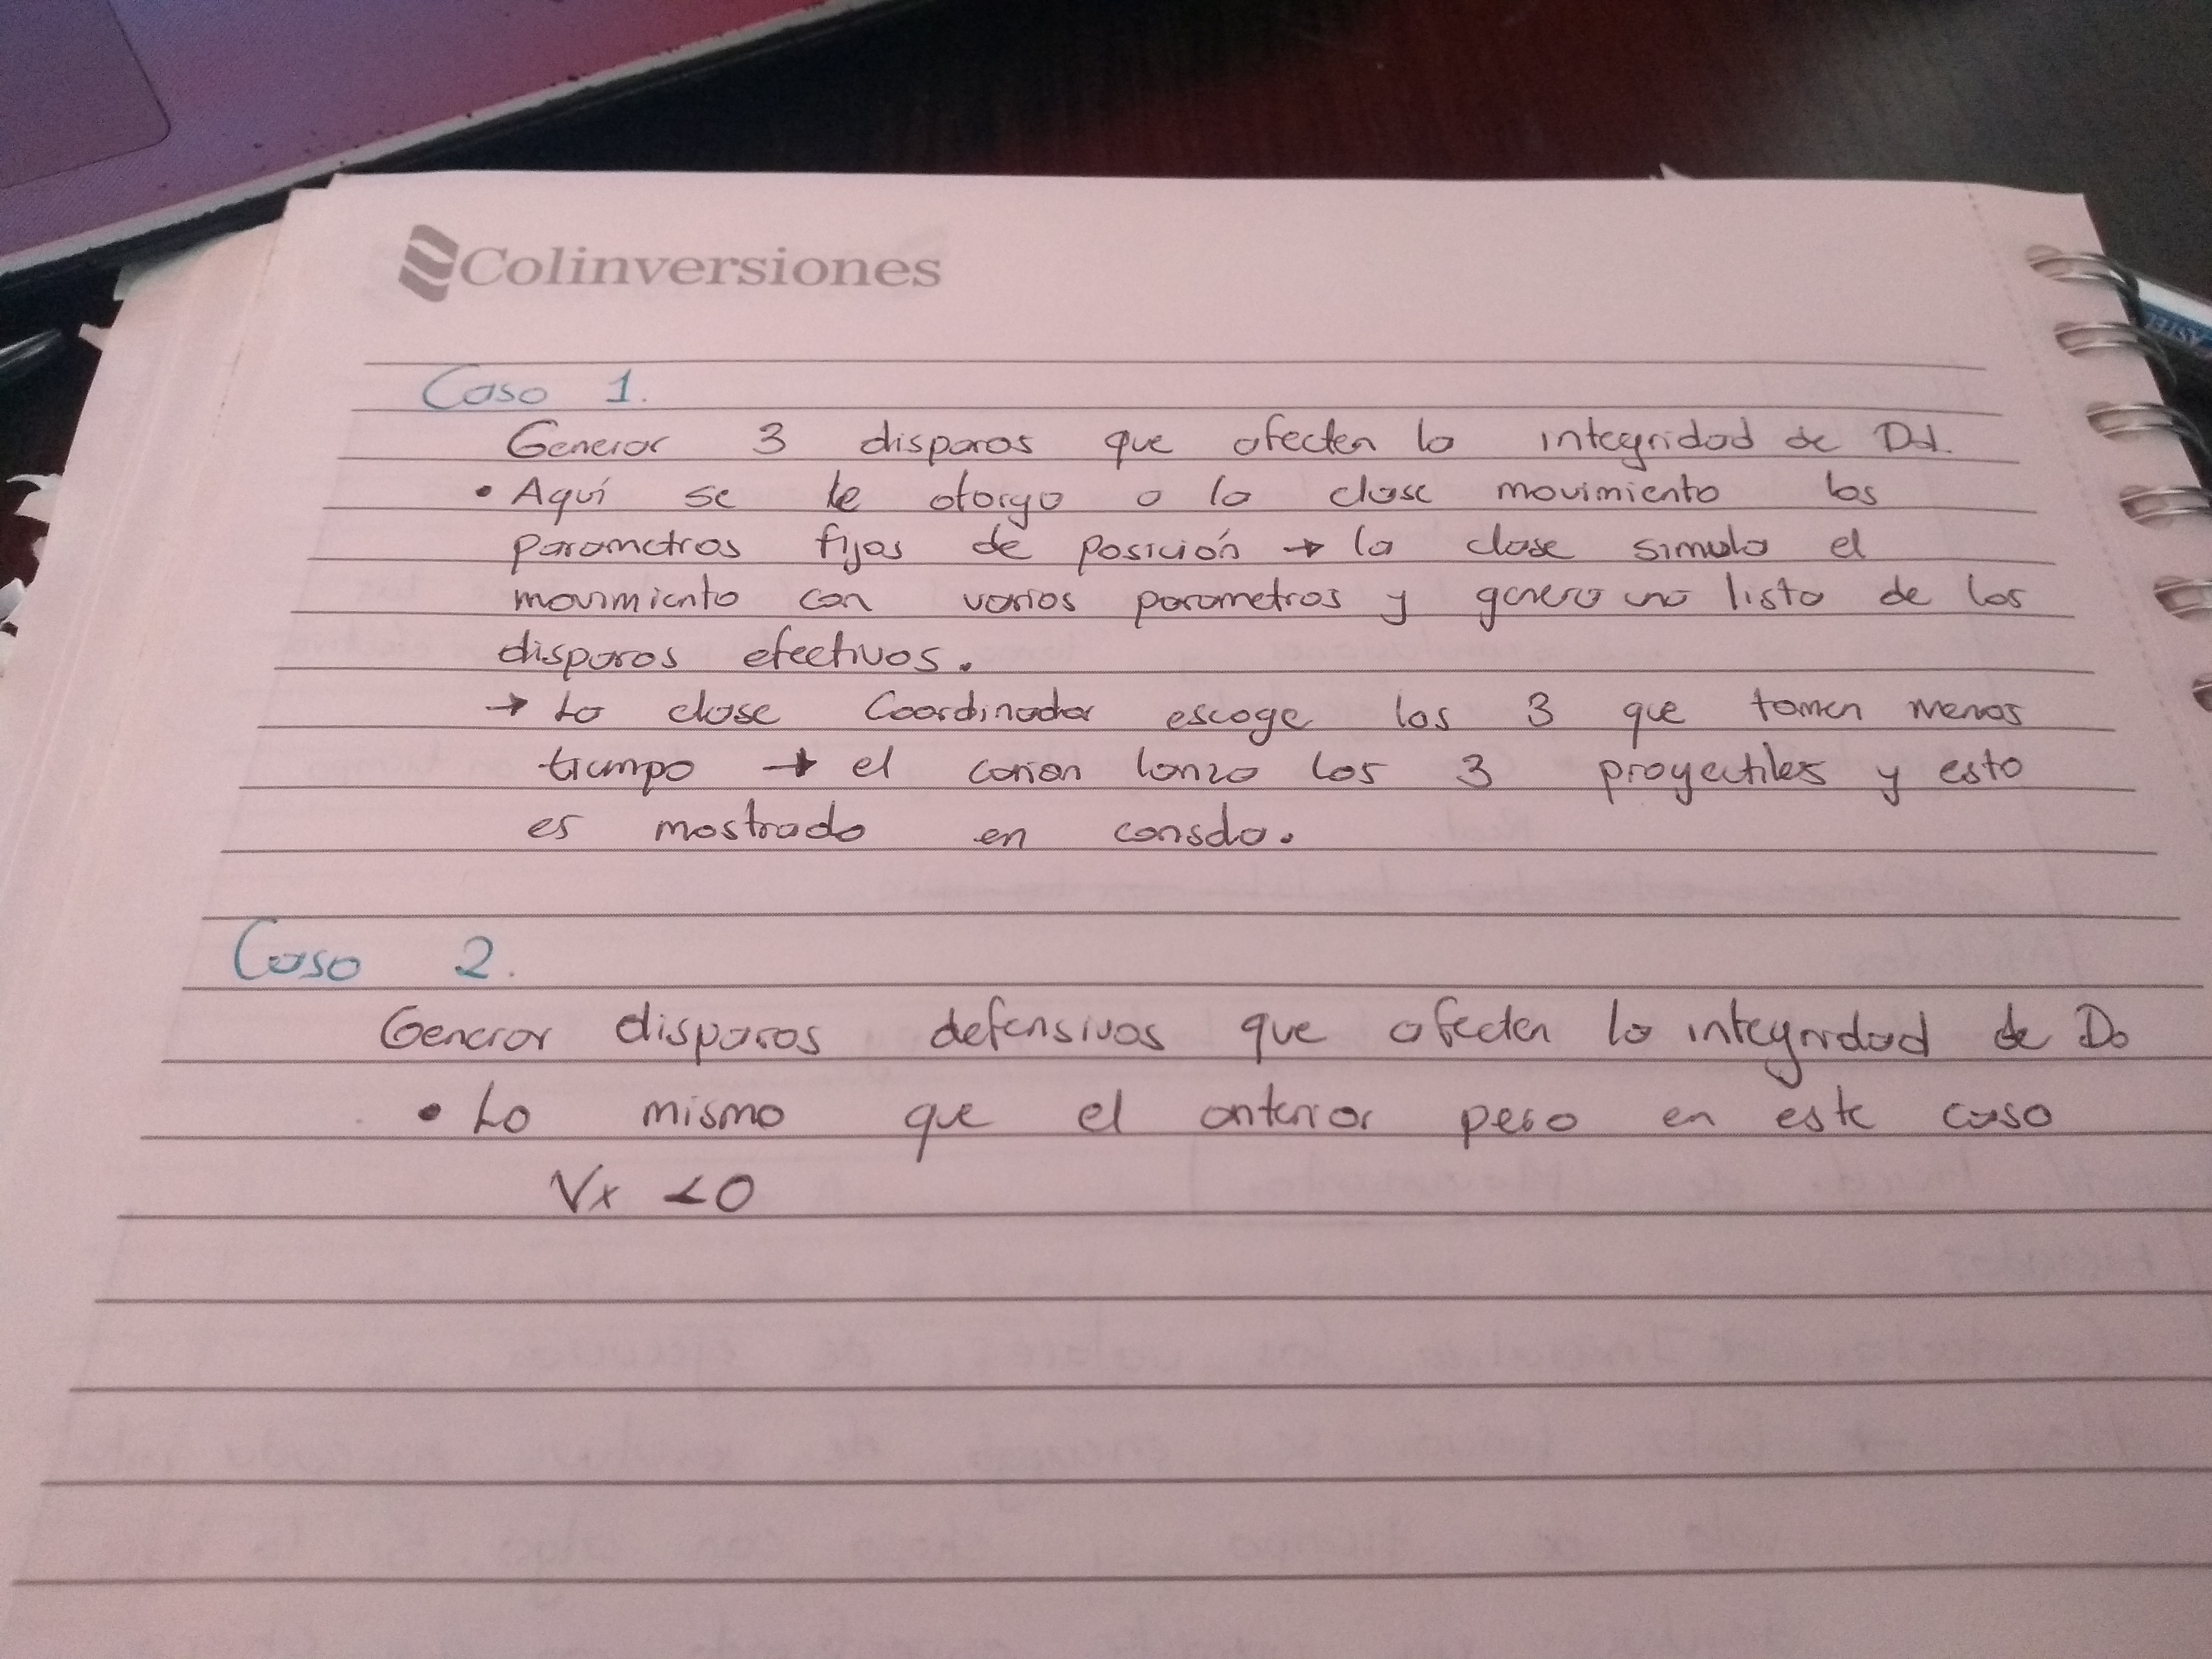 Colinversiones
Caso 1.
Generar 3 disparos que afecten la integridad de Dd.
• Aquí se le otorga a la clase movimiento los
parametros fijos de posición → la clase simula el
movimiento con varios parametros y genera una lista de los
disparos efectivos.
→ La clase Coordinador escoge los 3 que tomen menos
tiempo → el cañon lanza los 3 proyectiles y esto
es mostrado en consola.
Caso 2.
Generar disparos defensivos que afecten la integridad de Do
• Lo mismo que el anterior pero en este caso
Vx <0